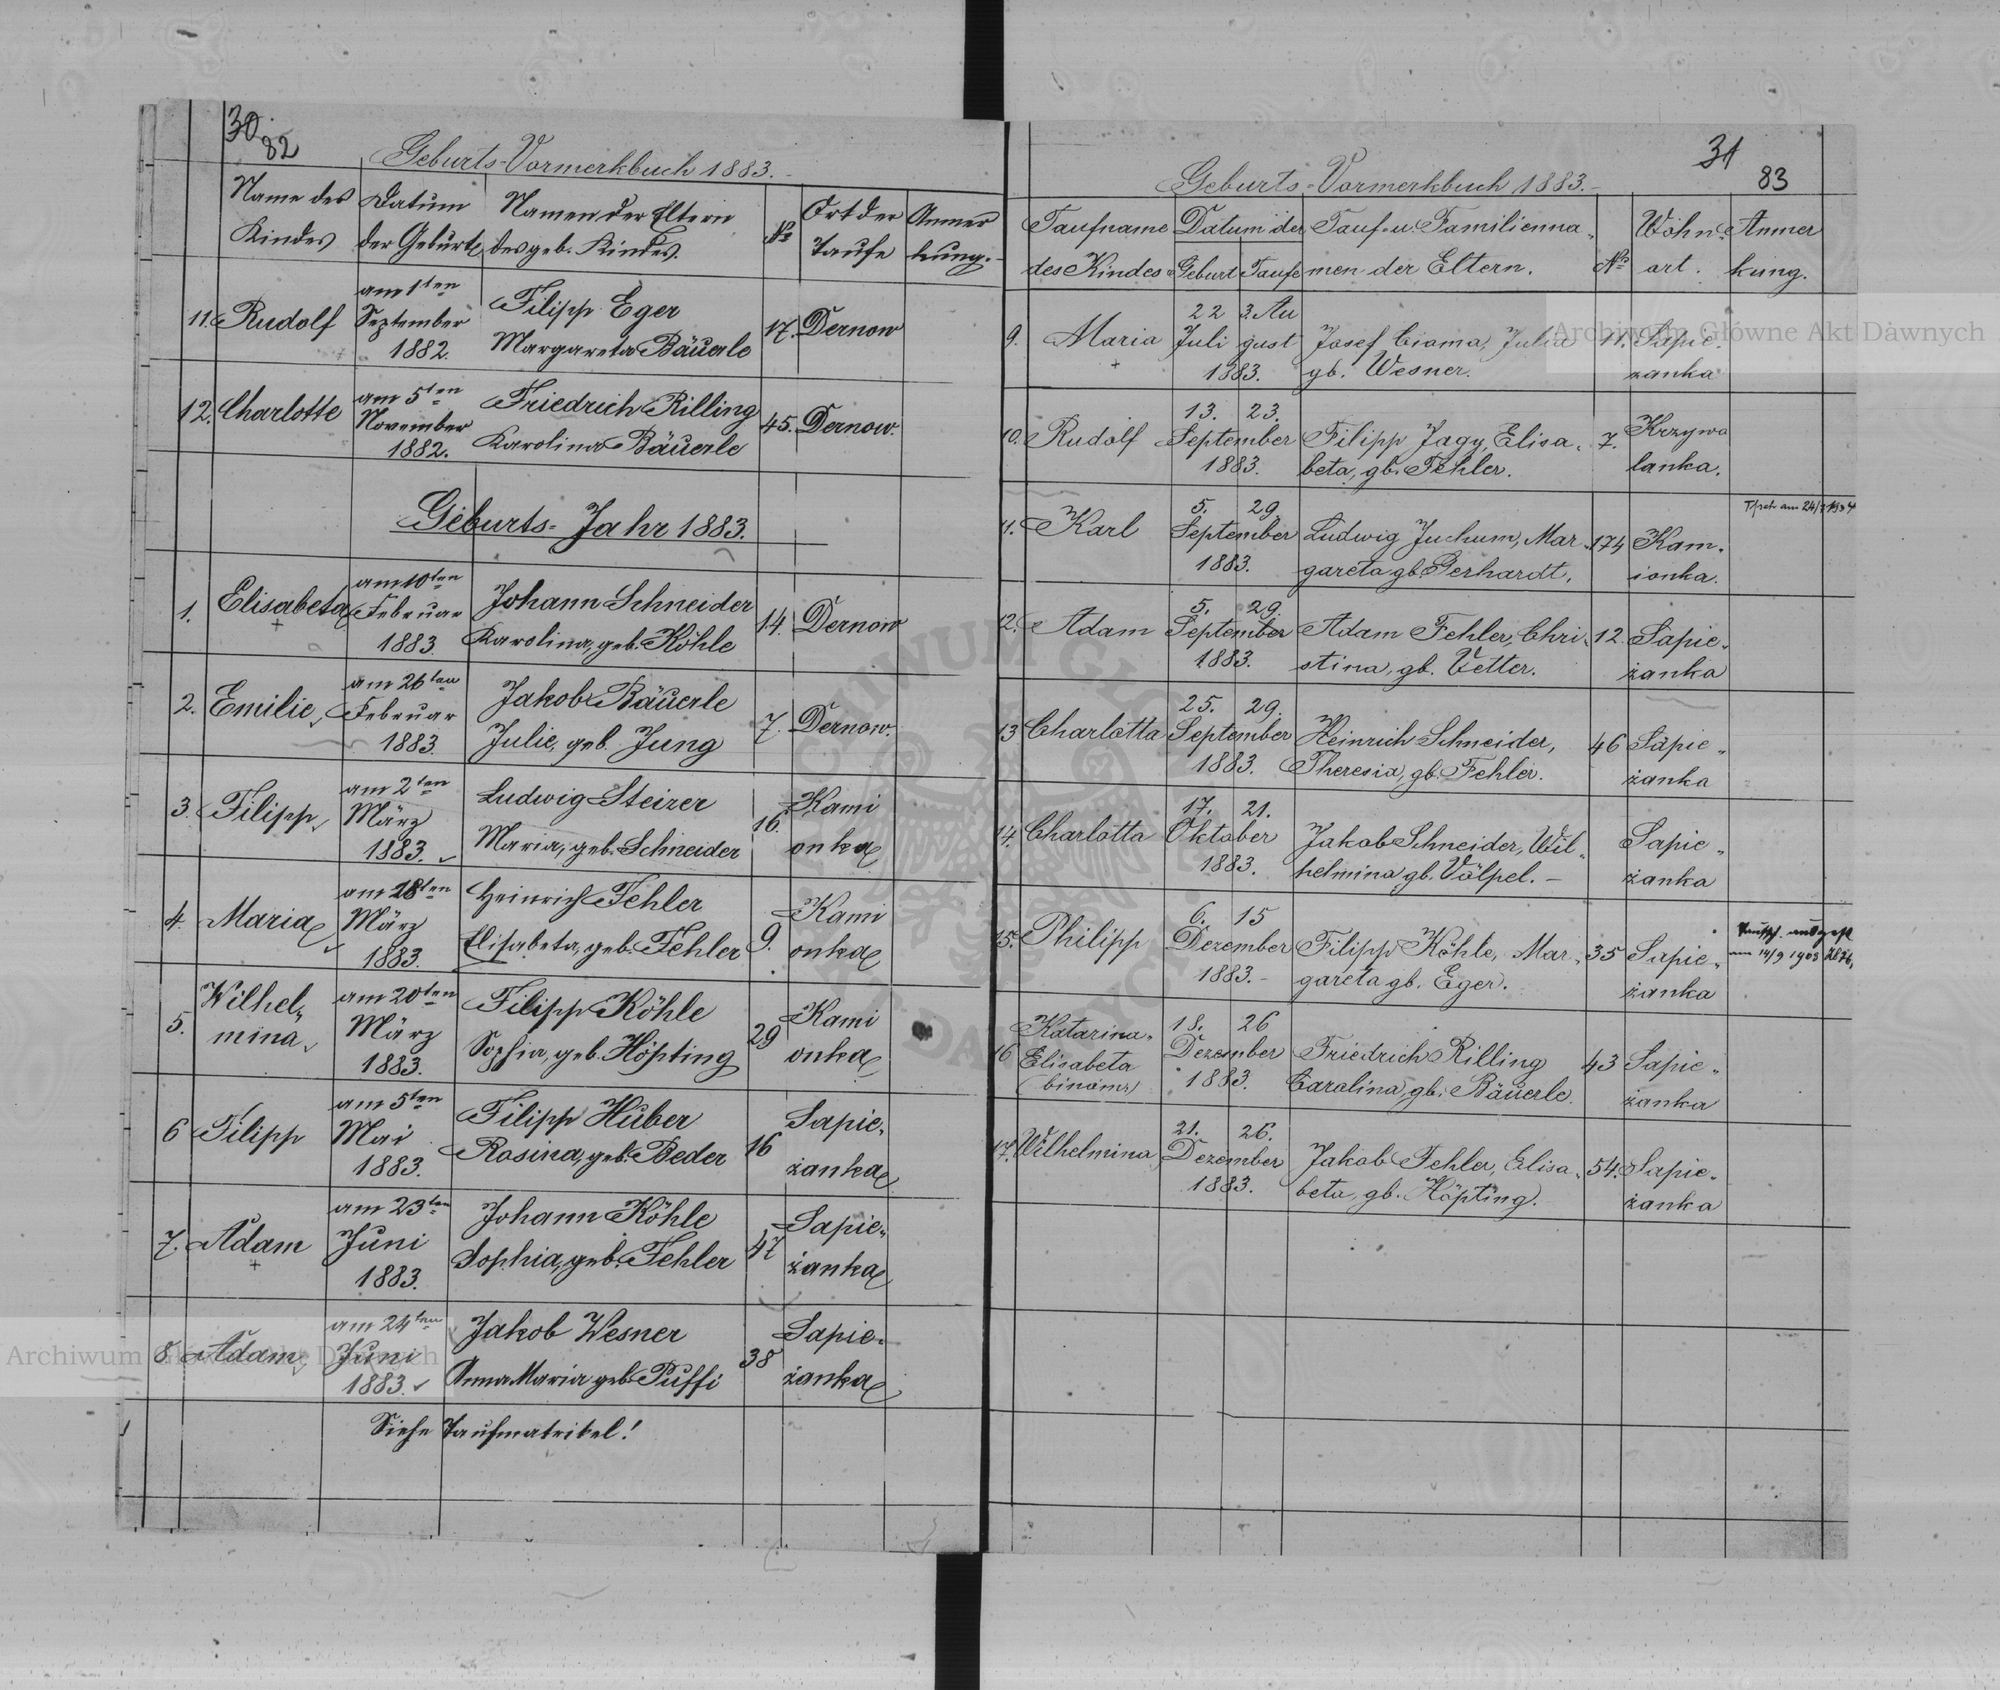 30
82
Geburts-Vormerkbuch 1883.
Name des Kindes
Datum der Geburt
Namen der Eltern des geb. Kindes.
No
Ort der Taufe
Anmerkung.
11. Rudolf am 1ten September 1882. Filipp Eger Margareta Bäuerle 17. Dernow
12. Charlotte am 5ten November 1882. Friedrich Rilling Karolina Bäuerle 45. Dernow.
Geburts-Jahr 1883.
1. Elisabeta am 10ten Februar 1883 Johann Schneider Karolina, geb. Köhle 14. Dernow
2. Emilie am 26ten Februar 1883. Jakob Bäuerle Julie, geb. Jung 7. Dernow.
3. Filipp am 2ten März 1883. Ludwig Steirer Maria, geb. Schneider 16. Kamionka
4. Maria am 18ten März 1883. Heinrich Fehler Elisabeta, geb. Fehler 9. Kamionka
5. Wilhelmina am 20ten März 1883. Filipp Köhle Sophia, geb. Höpting 29 Kamionka
6 Filipp am 5ten Mai 1883. Filipp Huber Rosina, geb. Beder 16 Sapieżanka
7. Adam am 23ten Juni 1883. Johann Köhle Sophia, geb. Fehler 47 Sapieżanka
8. Adam am 24ten Juni 1883. Jakob Wesner Anna Maria geb. Puffi 38 Sapieżanka
Siehe Taufmatrikel!
31
83
Geburts-Vormerkbuch 1883.-
Taufname des Kindes
Datum der
Geburt Taufe
Tauf- u. Familiennamen der Eltern.
No
Wohnort.
Anmerkung.
9. Maria 22 Juli 3. August 1883. Josef Cioma, Julia gb. Wesner. 11. Sapieżanka
10. Rudolf 13. 23. September 1883. Filipp Jagy, Elisabeta, gb. Fehler. 7. Krzywolanka.
11. Karl 5. 29. September 1883. Ludwig Juchum, Margareta gb. Gerhardt. 174 Kamionka.
12. Adam 5. 29. September 1883. Adam Fehler, Christina, gb. Vetter. 12. Sapieżanka
13 Charlotta 25. 29. September 1883. Heinrich Schneider, Theresia, gb. Fehler. 46 Sapieżanka
14. Charlotta 17. 21. Oktober 1883. Jakob Schneider, Wilhelmina gb. Völpel. - Sapieżanka
15. Philipp 6. 15 Dezember 1883.- Filipp Köhle, Margareta gb. Eger. 35 Sapieżanka
am 14/9 1903
16 Katarina-Elisabeta (binom.) 18. 26 Dezember 1883. Friedrich Rilling Carolina, gb. Bäuerle. 43 Sapieżanka
17. Wilhelmina 21. 26. Dezember 1883. Jakob Fehler, Elisabeta, gb. Höpting. 54. Sapieżanka
Archiwum Główne Akt Dawnych
Archiwum Główne Akt Dawnych